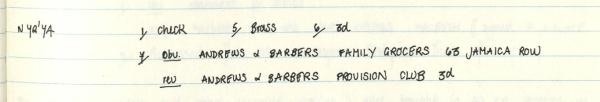 N 492'74 1/ Check 5/ Brass 6/ 3d
7/ Obv. ANDREWS & BARBERS FAMILY GROCERS 63 JAMAICA ROW
rev ANDREWS & BARBERS PROVISION CLUB 3d